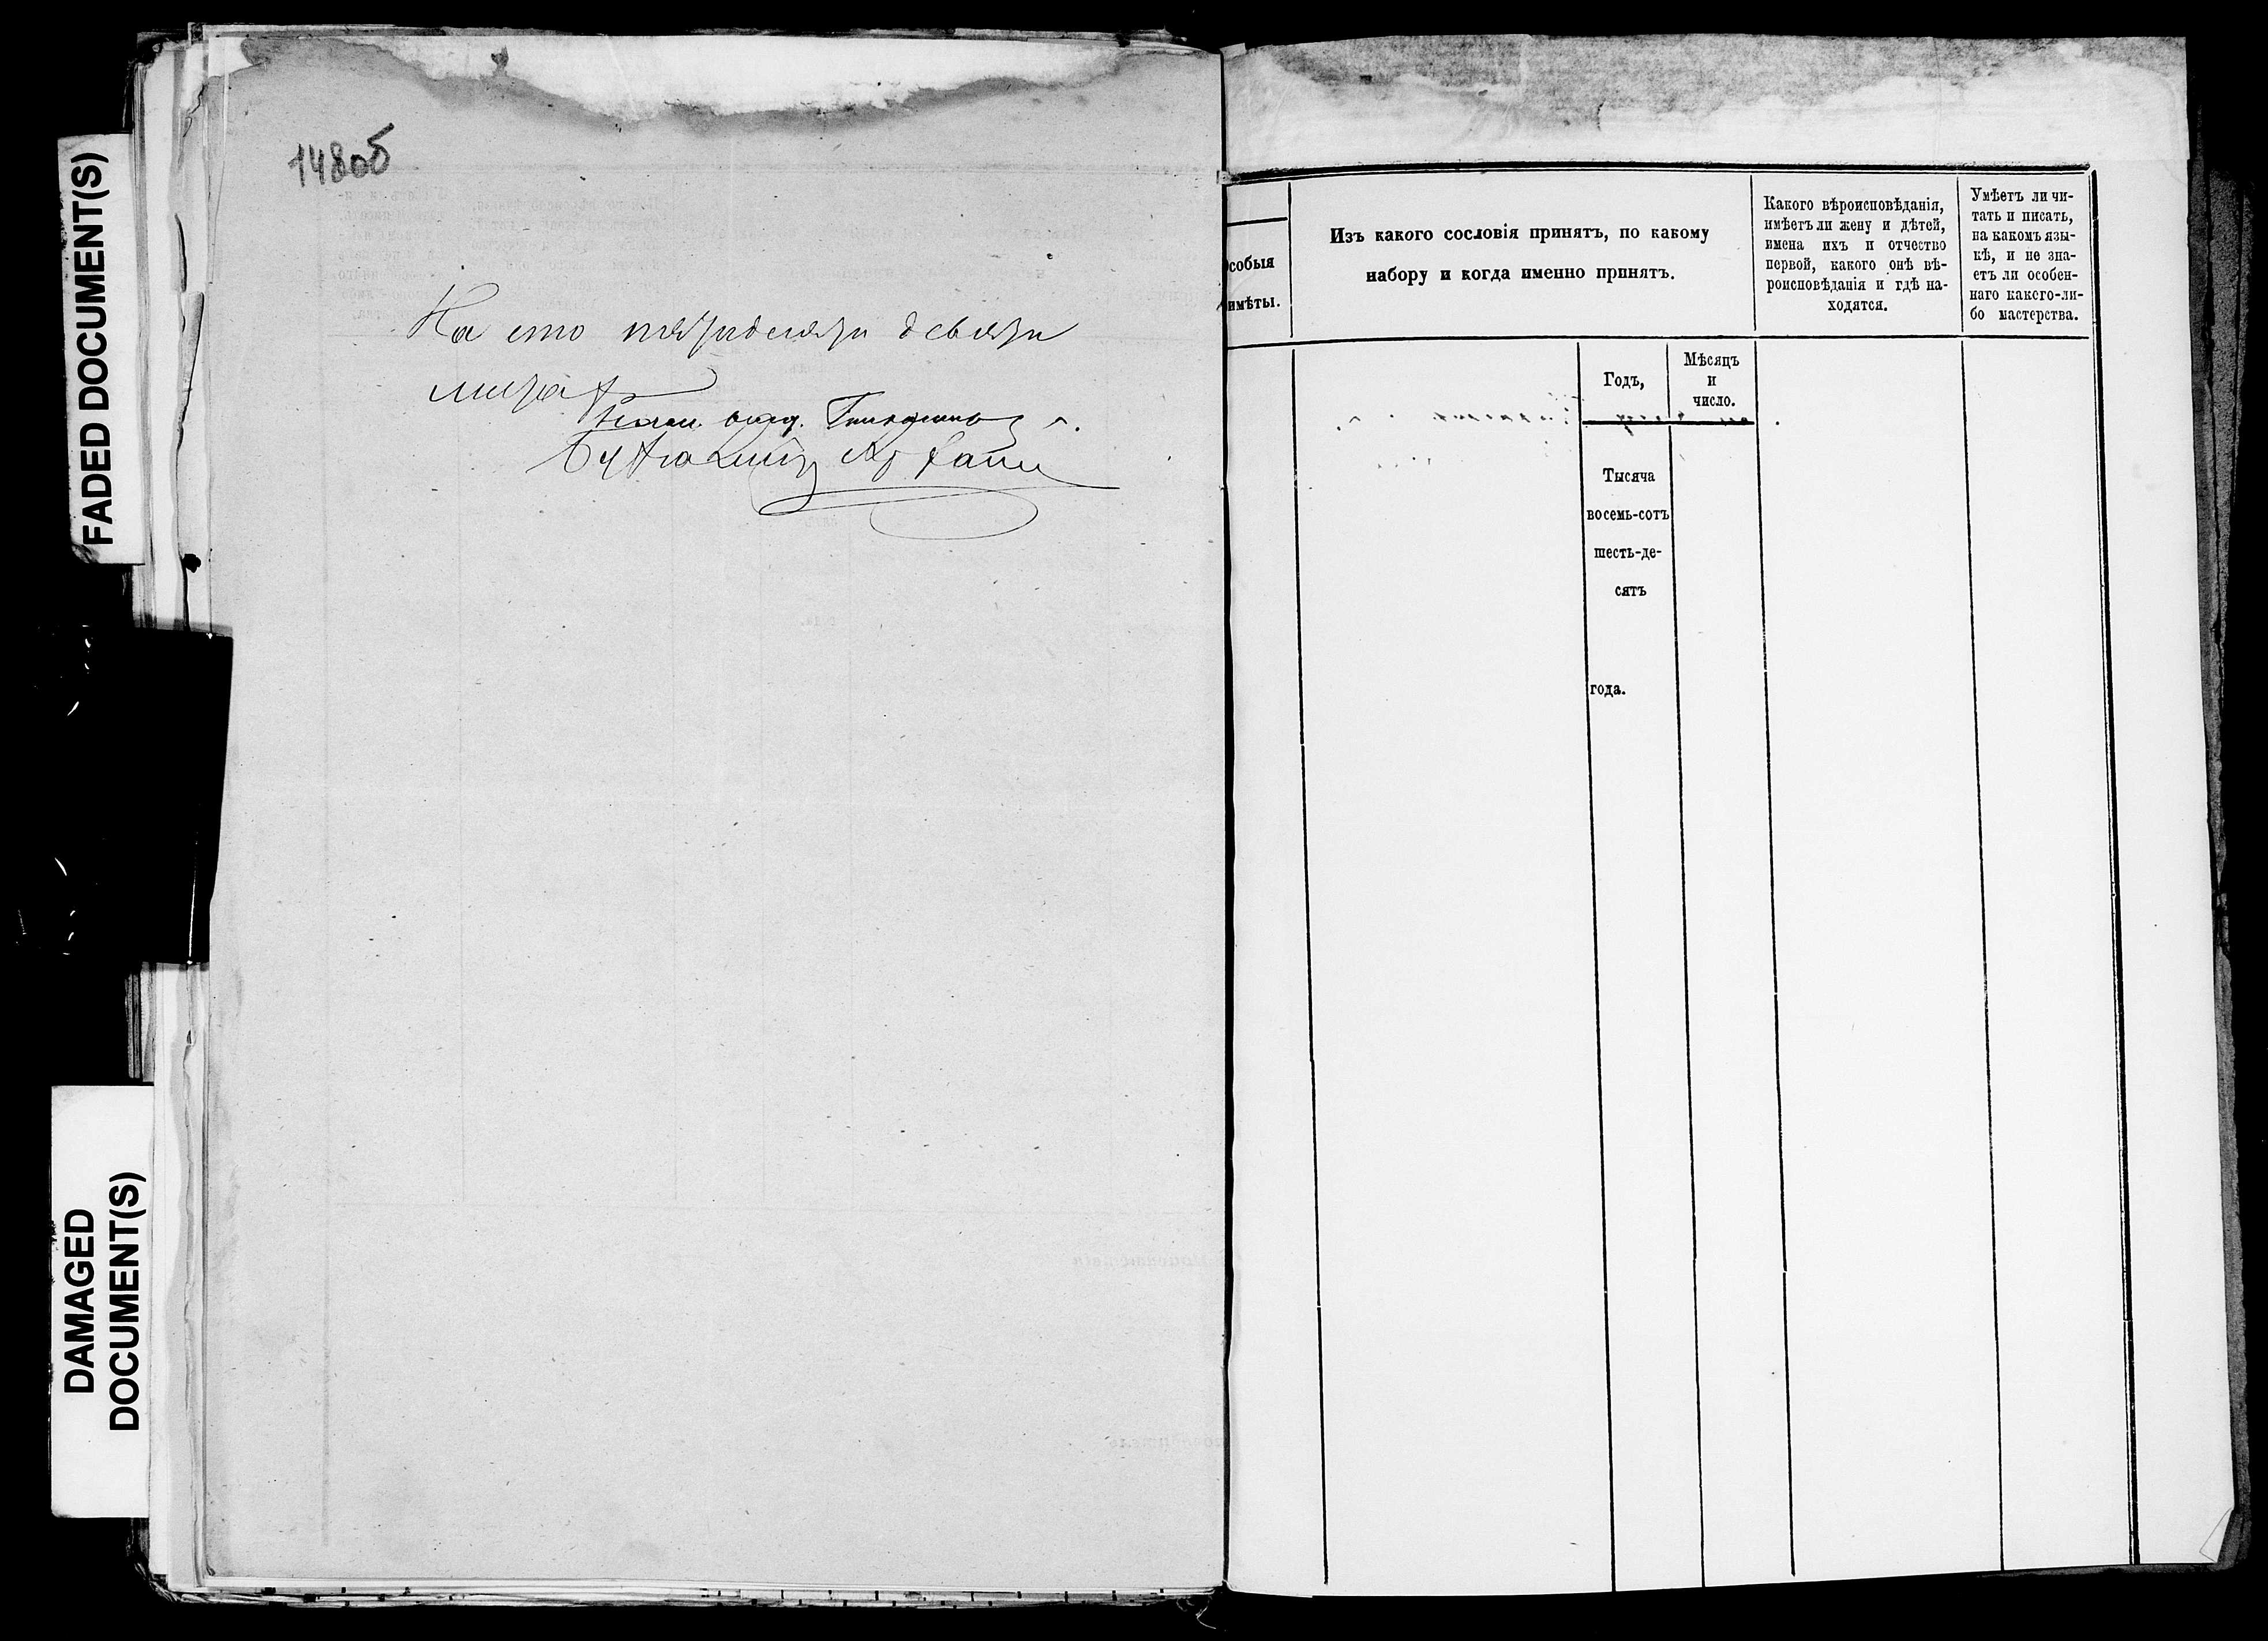 FADED DOCUMENT(S)
DAMAGED
DOCUMENT(S)
148об
На сто
Особыя
имѣты.
Изъ какого сословія принятъ, по какому
набору и когда именно принятъ.
Какого вѣроисповѣданія,
имѣетъ ли жену и дѣтей,
имена ихъ и отчество
первой, какого онѣ вѣ-
роисповѣданія и гдѣ на-
ходятся.
Умѣетъ ли чи-
тать и писать,
на какомъ язы-
кѣ, и не зна-
етъ ли особен-
наго какого-ли-
бо мастерства.
Годъ,
Мѣсяцъ
и
число.
Тысяча
восемь-сотъ
шесть-де-
сятъ
года.